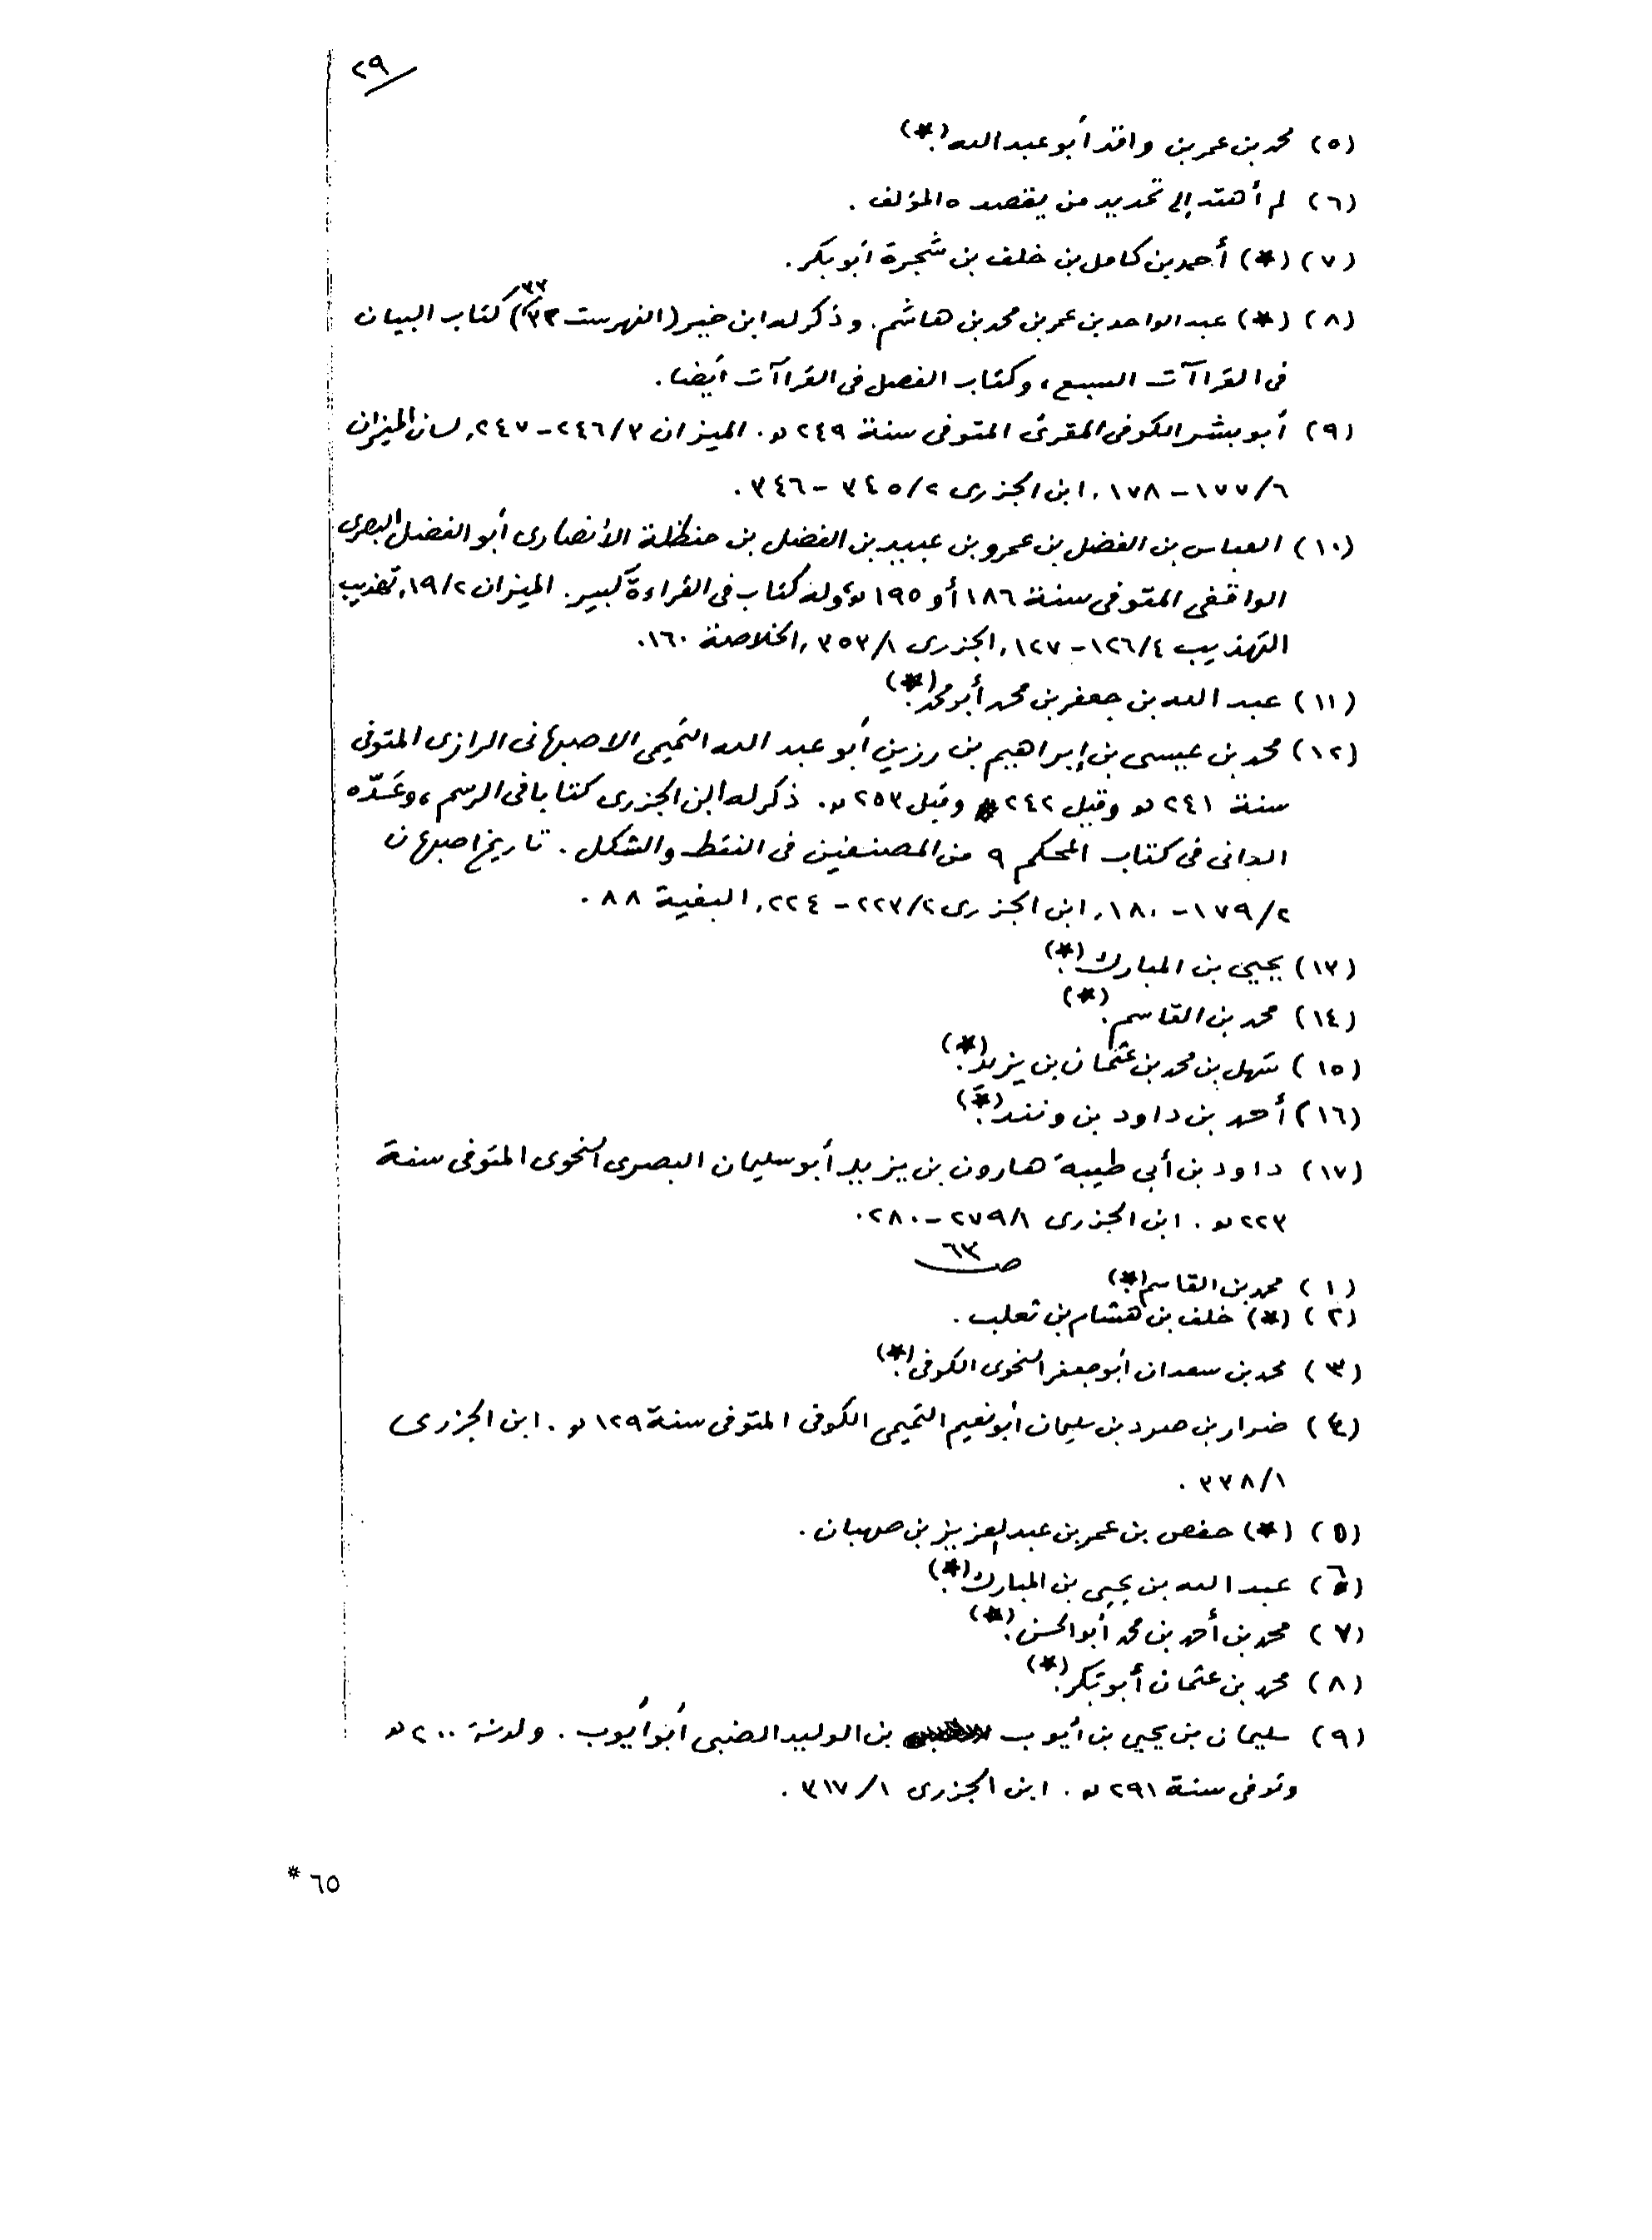 ٢٩
(٥) محمد بن عمر بن واقد أبو عبد الله (*).
(٦) لم أهتد إلى تحديد من يقصده المؤلف .
(٧) (*) أحمد بن كامل بن خلف بن شجرة أبو بكر .
(٨) (*) عبد الواحد بن عمر بن محمد بن هاشم. وذكر له ابن خير (الفهرست ٣٣) كتاب البيان
فى القراآت السبع ، وكتاب الفصل فى القراآت أيضا .
(٩) أبو بشر الكوفى المقرئ المتوفى سنة ٢٤٩ هـ. الميزان ٢٤٦/٣ - ٢٤٧, لسان الميزان
١٧٧/٦ - ١٧٨, ابن الجزرى ٣٤٥/٢ - ٣٤٦ .
(١٠) العباس بن الفضل بن عمرو بن عبيد بن الفضل بن حنظلة الأنصارى أبو الفضل البصرى
الواقفى المتوفى سنة ١٨٦ أو ١٩٥ هـ، وله كتاب فى القراءة كبير. الميزان ١٩/٢, تهذيب
التهذيب ١٢٦/٤ - ١٢٧, الجزرى ٣٥٣/١, الخلاصة ١٦٠.
(١١) عبد الله بن جعفر بن محمد أبو محمد (*).
(١٢) محمد بن عيسى بن إبراهيم بن رزين أبو عبد الله التميمى الاصبهانى الرازى المتوفى
سنة ٢٤١ هـ وقيل ٢٤٢ وقيل ٢٥٣ هـ. ذكر له ابن الجزرى كتابا فى الرسم ، وعَدّه
الدانى فى كتاب المحكم ٩ من المصنفين فى النقط والشكل . تاريخ اصبهان
١٧٩/٢ - ١٨٠, ابن الجزرى ٢٢٣/٢ - ٢٢٤, البغية ٨٨ .
(١٣) يحيى بن المبارك (*).
(١٤) محمد بن القاسم (*).
(١٥) سهل بن محمد بن عثمان بن يزيد (*).
(١٦) أحمد بن داود بن ونند (*).
(١٧) داود بن أبى طيبة هارون بن يزيد أبو سليمان البصرى النحوى المتوفى سنة
٢٢٣ هـ . ابن الجزرى ٢٧٩/١ - ٢٨٠.
ص ٦٣
(١) محمد بن القاسم (*).
(٢) (*) خلف بن هشام بن ثعلب .
(٣) محمد بن سعدان أبو جعفر النحوى الكوفى (*).
(٤) ضرار بن صرد بن سليمان أبو نعيم التميمى الكوفى المتوفى سنة ١٢٩ هـ . ابن الجزرى
٣٣٨/١ .
(٥) (*) حفص بن عمر بن عبد العزيز بن صهبان .
(٦) عبد الله بن يحيى بن المبارك (*).
(٧) محمد بن أحمد بن محمد أبو الحسن (*).
(٨) محمد بن عثمان أبو بكر (*).
(٩) سليمان بن يحيى بن أيوب بن الوليد الضبى أبو أيوب . ولد سنة ٢٠٠ هـ
وتوفى سنة ٢٩١ هـ . ابن الجزرى ٣١٧/١ .
٦٥ *